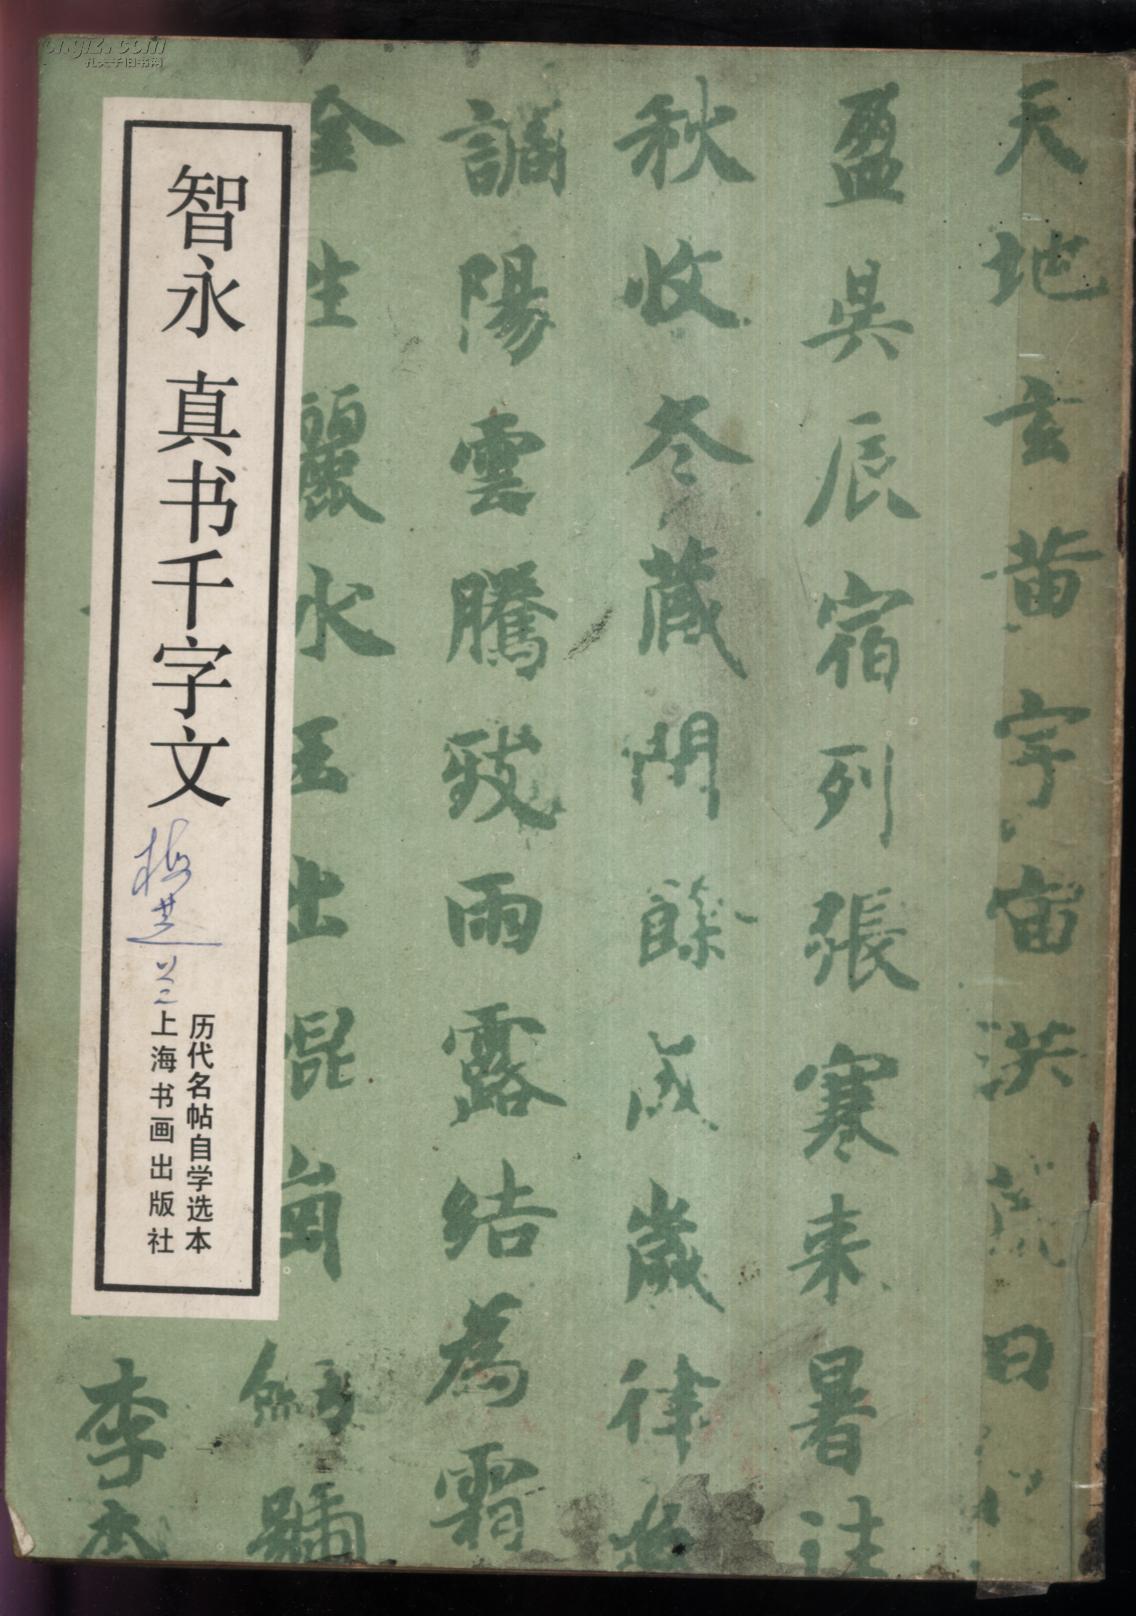 天地玄黄宇宙洪荒日
盈昃辰宿列張寒来暑往
秋收冬蔵閏餘成歳律
調陽雲騰致雨露結為霜
金生麗水玉出崐崗
劎號
李柰
智永 真书千字文
历代名帖自学选本
上海书画出版社